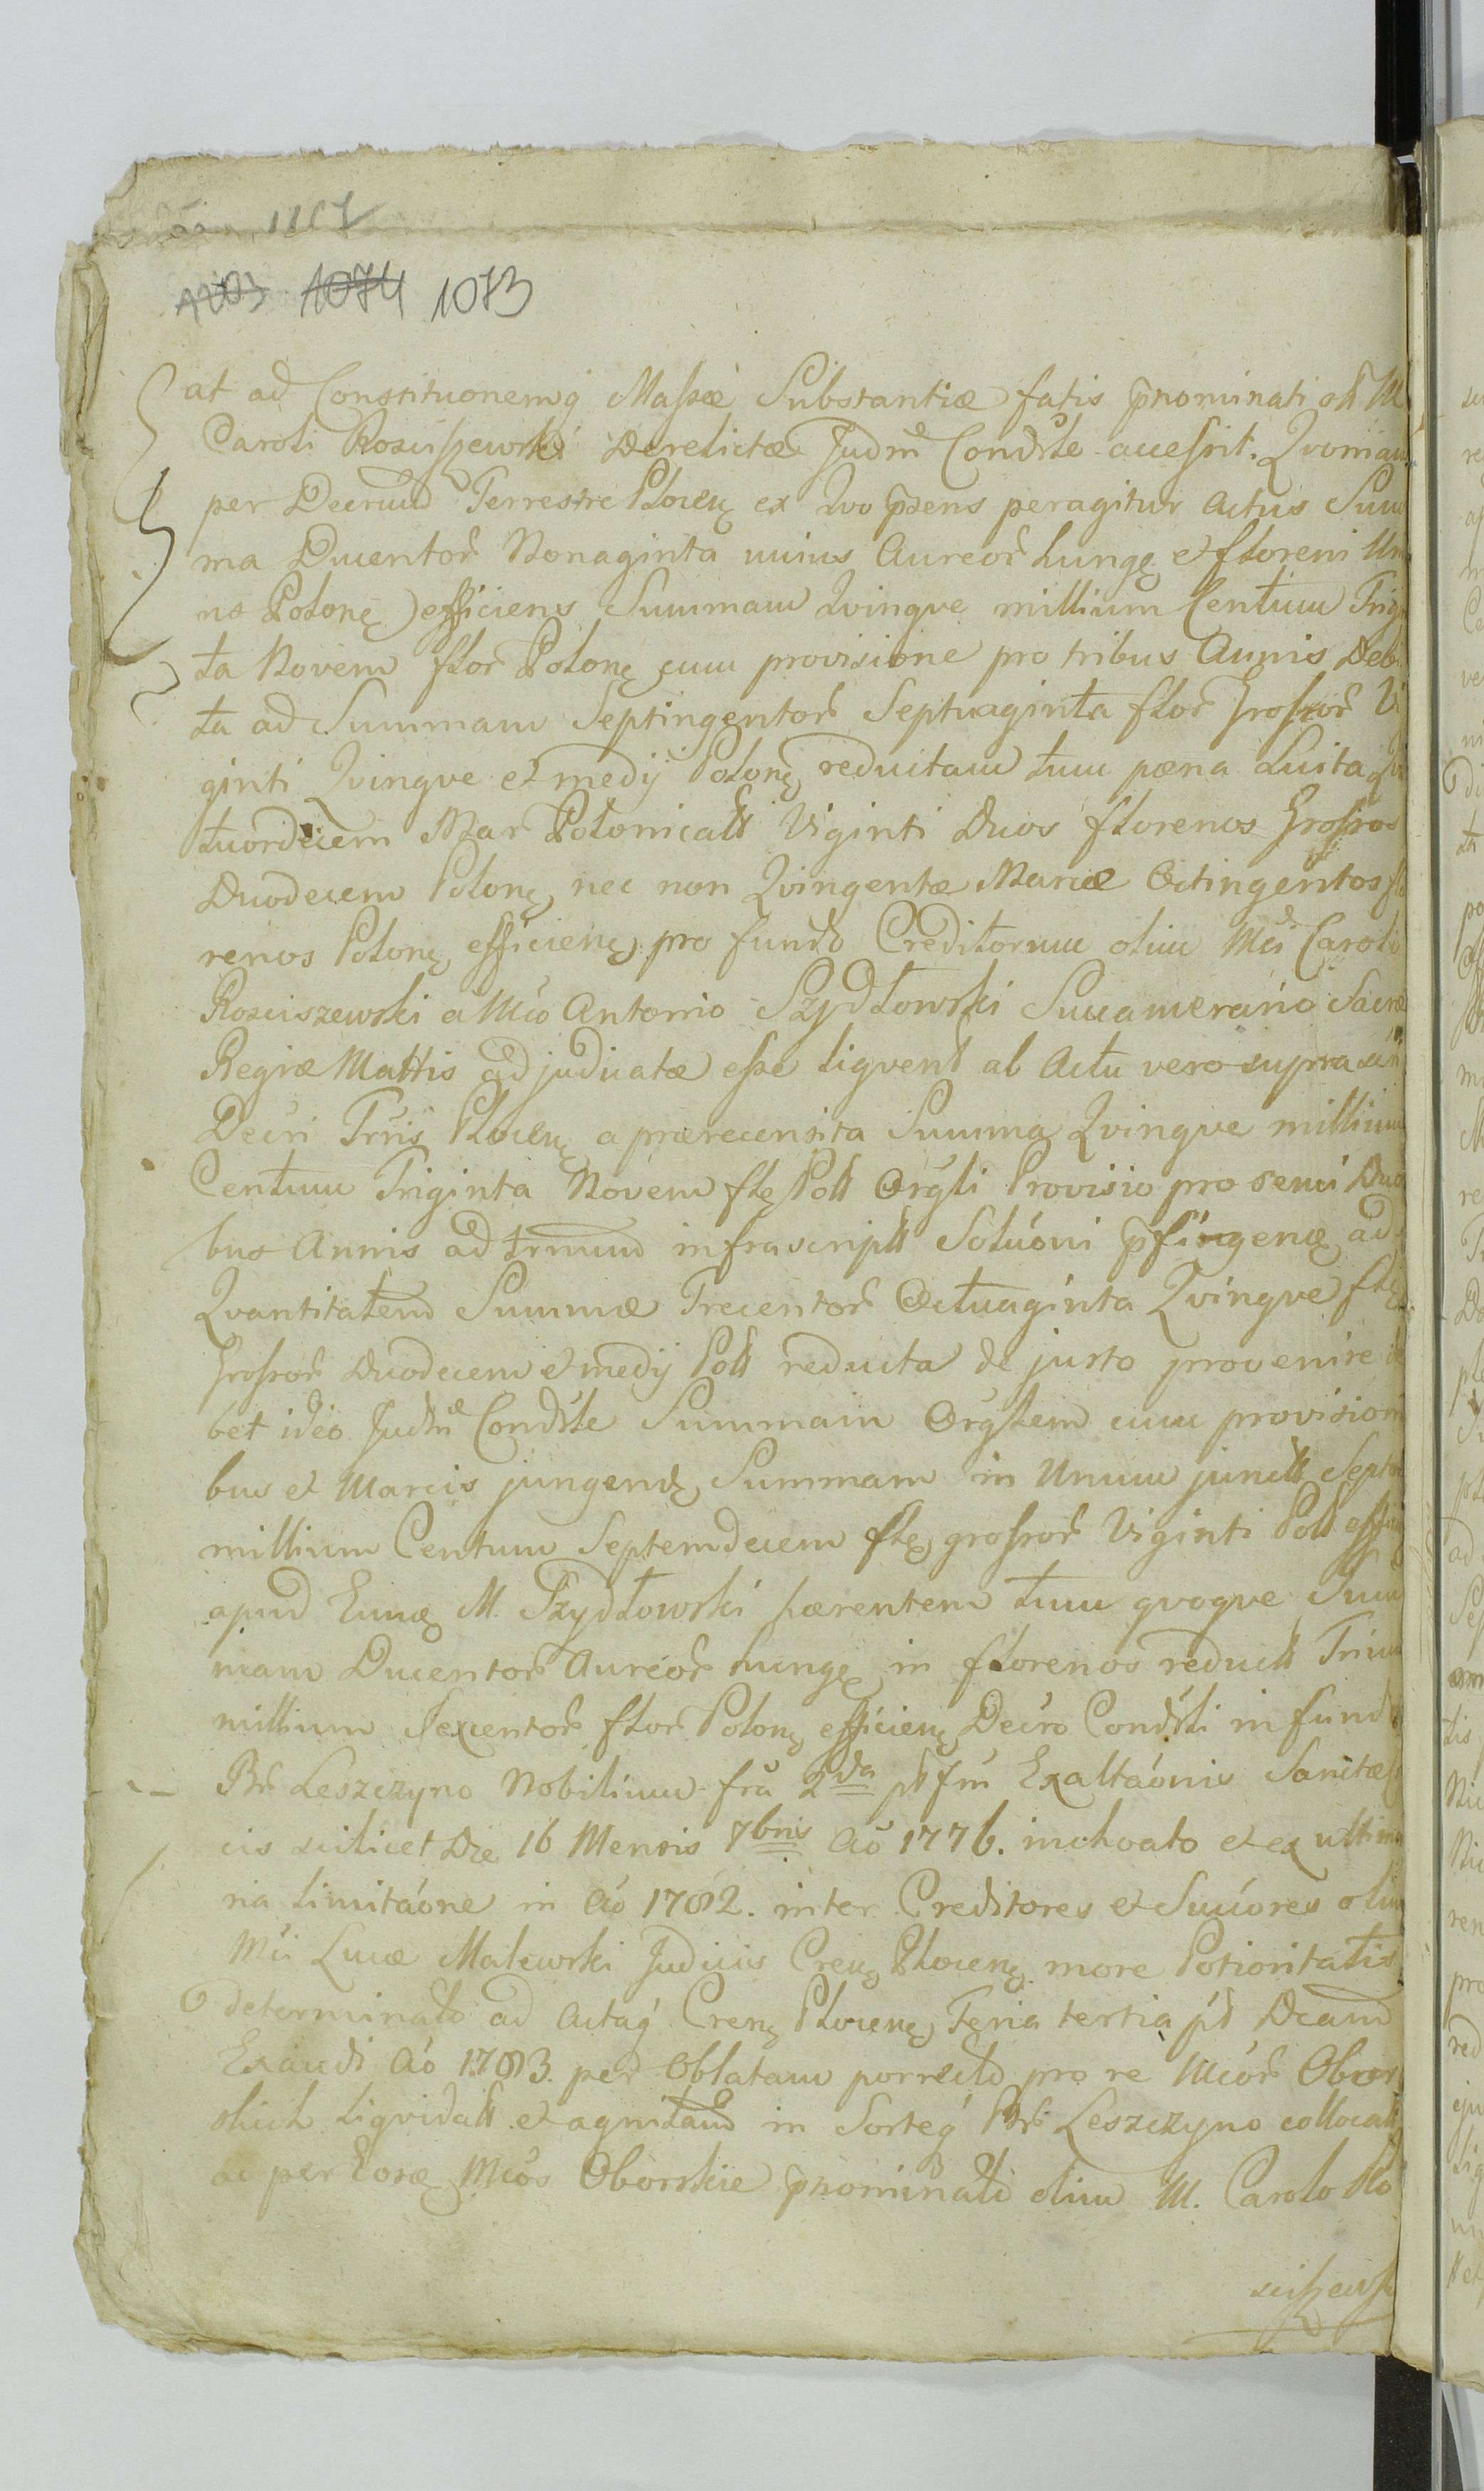 1203 1074 1073
at ad Constituonemq Massæ Substantiæ fatis pnominati olt M
Caroli Rosciszewski Derelictæ Judm Condste accessit. Qvoniam
per Decrum Terrestre Plocen ex Qvo pzens peragitur Actus Sum
ma Ducentor Nonaginta unius Aureor hung et floreni Un
no Polone) efficiens Summam Qvinqve millium Centum Trigin
ta Novem flor Polone cum provisione pro tribus Annis Debi
ta ad Summam Septingentor Septuaginta flor Grossor Vi
ginti Qvinqve et medij Polone reductam tum pæna Luita Qva
tuordecem Mar Polonicall Viginti Duos florenos Grossos
Duodecem Polone, nec non Qvingentæ Marcæ Octingentos flo
renos Polone efficiene pro fundo Creditorum olim Mci Caroli
Rosciszewski a Mco Antonio Szydłowski Succamerario Sacræ
Regiæ Mattis adjudicatæ esse liqvent ab Actu vero supra
Decri Trris Plocen a præcensita Summa Qvinqve millium
Centum Triginta Novem fle Poll Orgli Provisio pro semi Duo
bus Annis ad trnum infrascriptt Soluoni pfingene ad
Qvantitatem Summæ Trecentor Octuaginta Qvinqve fle
Grossor Duodecem et medij Poll reducta de justo provenire de
bet ideo Judm Condste Summam Orglem cum provisioni
bus et Marcis jungendo Summam in Unum junctt Septem
millium Centum Septemdecem fle grossor Viginti Poll effici
apud Eune M. Szydłowski hærentem tum qvoqve Sum
mam Ducentor Aureor hunge in florenos reductt Trium
millium Sexcentor flor Polone efficiene Decro Condsti in fundo
Br Leszczyno Nobilium fra 2da pt fm Exaltaonis Sanctæ
cis scilicet Die 16 Mensis 7bris Ao 1776. inchoato et ex ultima
ria limitaone in Ao 1782. inter Creditores et Succores olim
Mci Lucæ Malewski Judicis Crene Plocene more Potioritatis
determinato ad Actaq Crene Plocene Feria tertia pt Dcam
Exaudi Ao 1783. per Oblatam porrecto pro re Mcor Obor
skich liqvidatt et agnitam in Sorteq Br Leszczyno collocatt
ac per Eosæ Mcos Oborskie pnominato olim M. Carolo Ro
sciszewsk